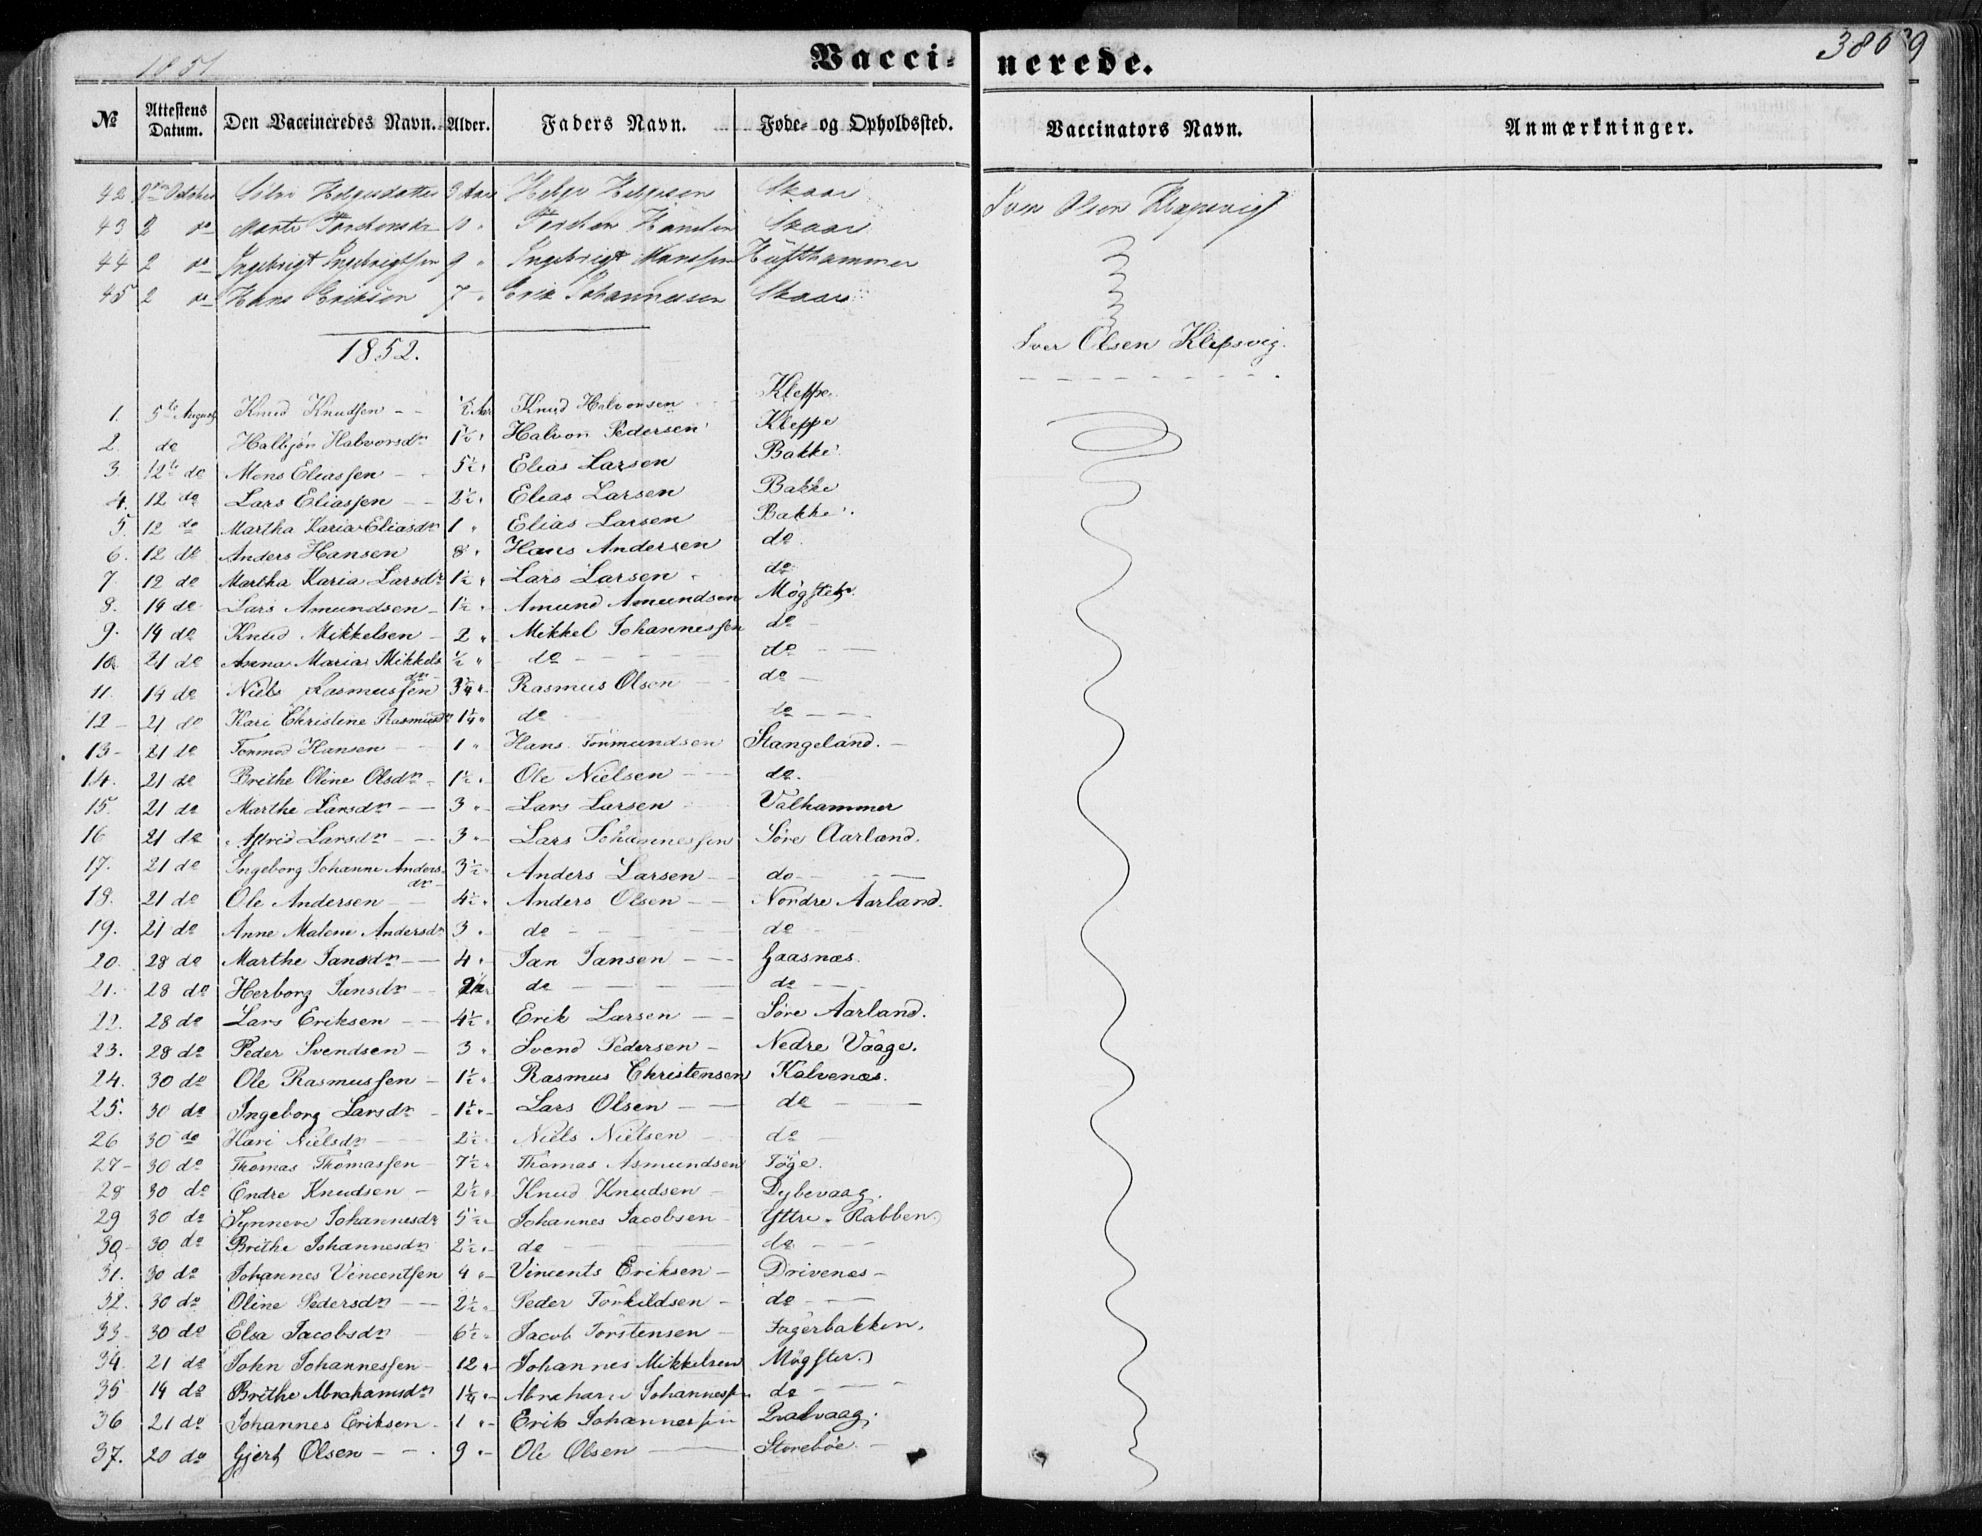 1851
Vaccinerede.
386
9
№ Attestens Datum. Den Vaccineredes Navn. Alder. Faders Navn. Føde- og Opholdssted. Vaccinators Navn. Anmærkninger.
42 2den October Helgesdatter 9 Aar Helge Helgesen Skaar Iver Olsen Klepsvig
43 2 do Marte 10 " Skaar
44 2 do Ingebrigt Ingebrigtsen 9 " Ingebrigt Monssen Hufthammer
45 2 do Hans Eriksen 7 " Erik Johannessen Skaar
1852. Iver Olsen Klepsvig.
1. 5te August Knud Knudsen ½ Aar Knud Halvorsen Kleppe.
2 do Halbjør Halvorsdr 1½ " Halvor Pedersen Kleppe
3 12te do Mons Eliassen 5½ " Elias Larsen Bakke
4. 12 do Lars Eliassen 2½ " Elias Larsen Bakke
5. 12 do Martha Karia Eliasdr 1 " Elias Larsen Bakke
6. 12 do Anders Hansen 8 " Hans Andersen do
7. 12 do Martha Karia Larsdr 1½ " Lars Larsen do
8. 14 do Lars Amundsen 1½ " Amund Amundsen Møgster
9. 14 do Knud Mikkelsen 2 " Mikkel Johannessen do
10. 21 do Anna Maria Mikkels dr ½ " do do
11. 14 do Niels Rasmussen 3¼ " Rasmus Olsen do
12 21 do Kari Christine Rasmusdr 1¼ " do do
13 21 do Tormod Hansen 1 " Hans Tormundsen Stangeland.
14. 21 do Brithe Oline Olsdr 1½ " Ole Nielsen do.
15. 21 do Marthe Larsdr 3 " Lars Larsen Valhammer
16 21 do Astrid Larsdr 3 " Lars Johannessen Søre Aarland.
17. 21 do Ingeborg Johanne Anders dr 3½ " Anders Larsen do
18. 21 do Ole Andersen 4½ " Anders Olsen Nordre Aarland.
19. 21 do Anne Malene Andersdr 3 " do do
20. 28 do Marthe Jansdr 4 " Jan Jansen Gaasnæs.
21. 28 do Herborg Jansdr 2½ do do
22. 28 do Lars Eriksen 4½ " Erik Larsen Søre Aarland.
23. 28 do Peder Svendsen 3 " Svend Pedersen Nedre Vaage.
24. 30 do Ole Rasmussen 1½ " Rasmus Christensen Kalvenæs.
25. 30 do Ingeborg Larsdr 1½ " Lars Olsen do
26 30 do Kari Nielsdr 2½ " Niels Nielsen do
27 30 do Thomas Thomassen 7½ " Thomas Asmundsen Føge.
28 30 do Endre Knudsen 2½ " Knud Knudsen Dybevaag.
29 30 do Synneve Johannesdr 5½ " Johannes Jacobsen Yttre Rabben.
30 30 do Brithe Johannesdr 2½ " do do
31. 30 do Johannes Vincentsen 4 " Vincents Eriksen Drivenes
32. 30 do Oline Pedersdr 2½ " Peder Torkildsen do
33 30 do Elsa Jacobsdr 6½ " Jacob Torstensen Fagerbakken.
34. 21 do John Johannessen 12 " Johannes Mikkelsen Møgster
35 14 do Brithe Abrahamsdr 1¼ " Abraham Johannessen do
36 21 do Johannes Eriksen 1 " Erik Johannessen Qvalvaag.
37. 20 do Gjert Olsen 9 " Ole Olsen Storebøe.